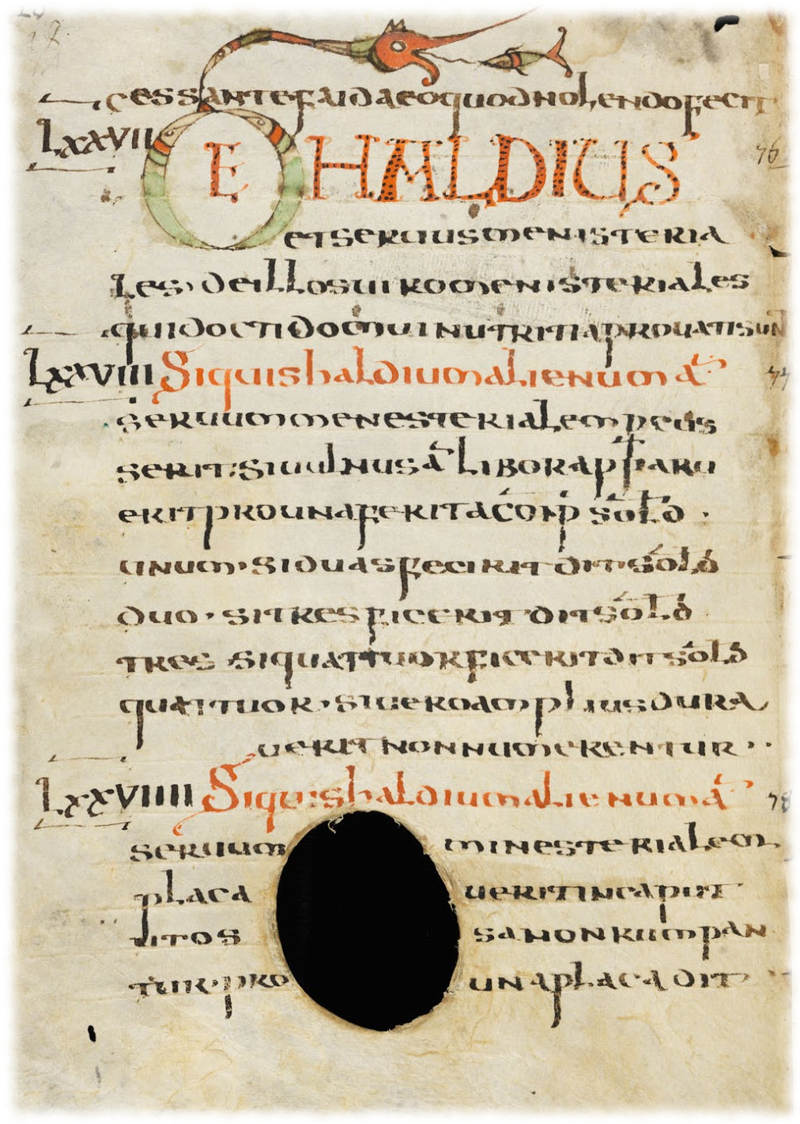 cessante faida eo quod nolendo fecit
LXXVII DE HALDIUS 76
et seruius menisteria
les. de illos uiro menisteriales
qui docti domui nutriti aprouati sunt
LXXVIII Si quis haldium alienum a͂ 77
seruum menesterialem pcus
serit: si uulnus a͂ libor apparu
erit pro una ferita co͂p sold ·
unum· si duas fecirit dit· sold
duo· si tres ficerit dit sold
tres· si quattuor ficerit dit sold
quattuor· si uero amplius dura
uerit non numerentur··
LXXVIIII Si quis haldium alienum a͂ 78
seruum minesterialem
placa uerit in caput
ut os sa non rumpan
tur· pro una placa dit